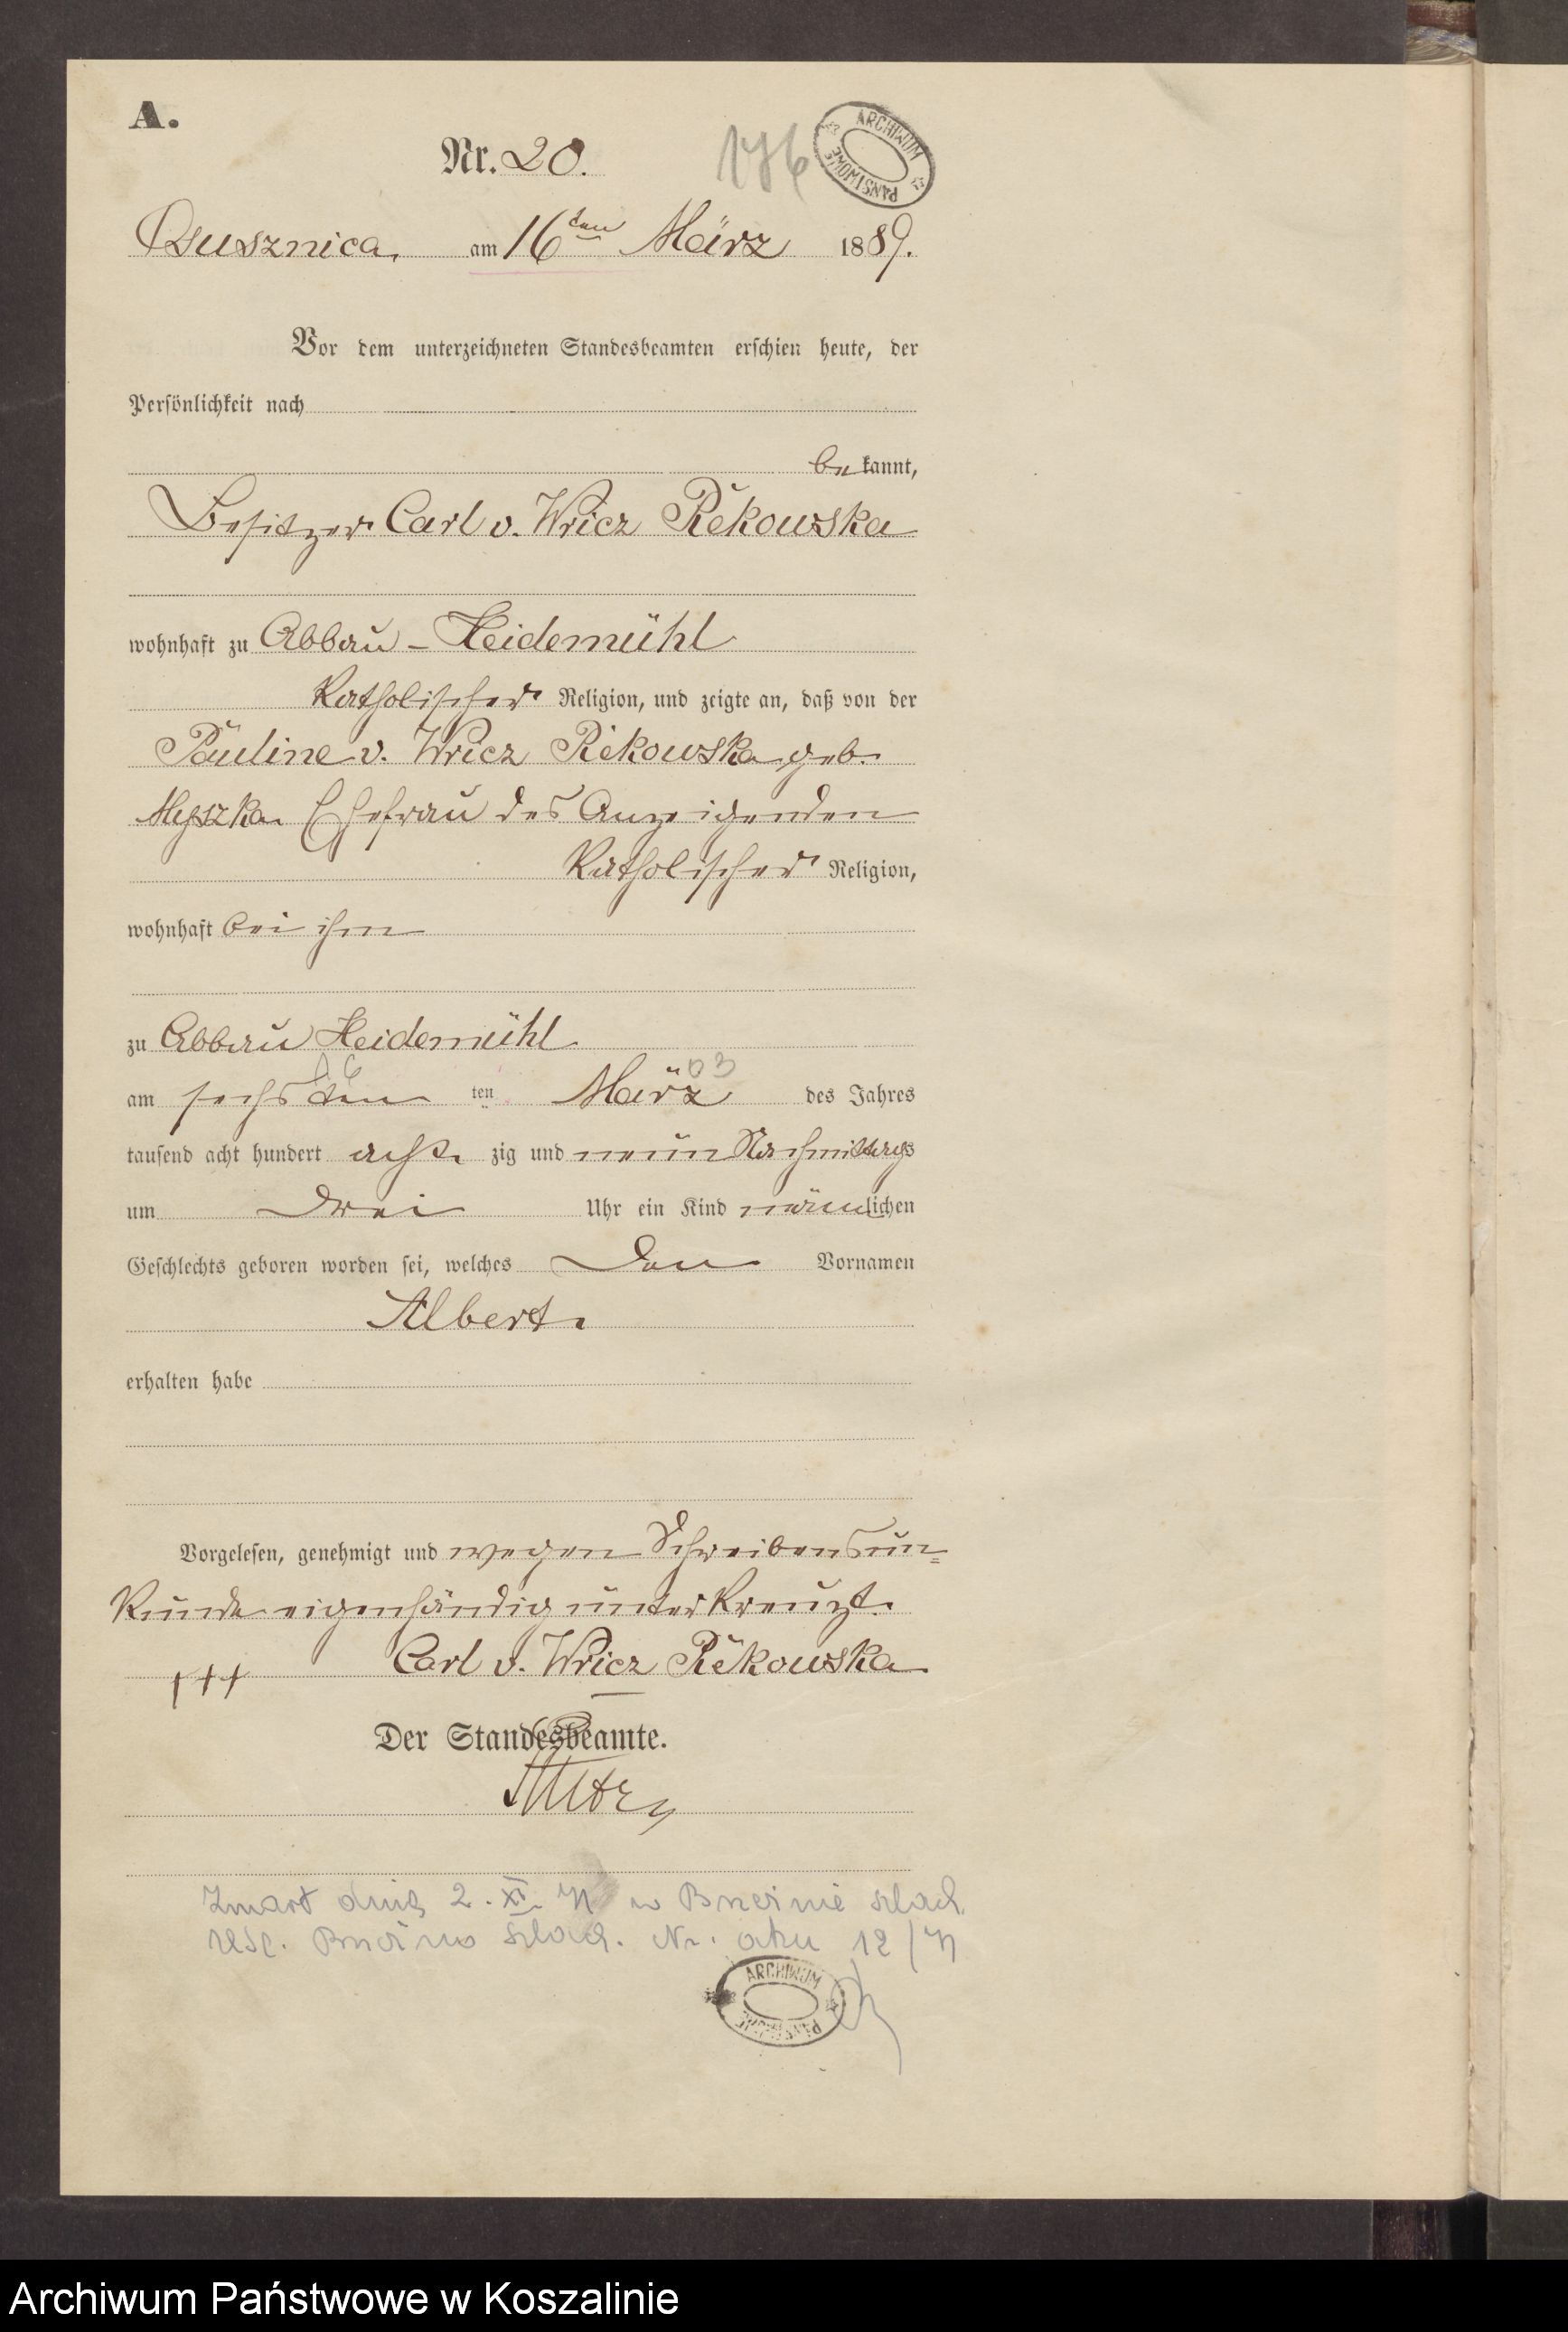 A.
Nr. 20.
176
ARCHIWUM PAŃSTWOWE
Ossusznica, am 16ten März 1889.
Vor dem unterzeichneten Standesbeamten erschien heute, der
Persönlichkeit nach
be kannt,
Besitzer Carl v. Wricz Rěkowska
wohnhaft zu Abbau - Heidemühl
Katholischer Religion, und zeigte an, daß von der
Pauline v. Wricz Rěkowska geb.
Myszka Ehefrau des Anzeigenden
Katholischer Religion,
wohnhaft bei ihm
zu Abbau Heidemühl
06 03
am sechsten ten März des Jahres
tausend acht hundert acht zig und neun Nachmittags
um drei Uhr ein Kind männlichen
Geschlechts geboren worden sei, welches den Vornamen
Albert.
erhalten habe
Vorgelesen, genehmigt und wegen Schreibensun=
kunde eigenhändig unterkreuzt.
+++ Carl v. Wricz Rěkowska
Der Standesbeamte.
Zmarł dnia 2. XI. 71 w Brzeźnie szlach.
USC. Brzeźno Szlach. Nr. aktu 12/71
ARCHIWUM PAŃSTWOWE
Archiwum Państwowe w Koszalinie